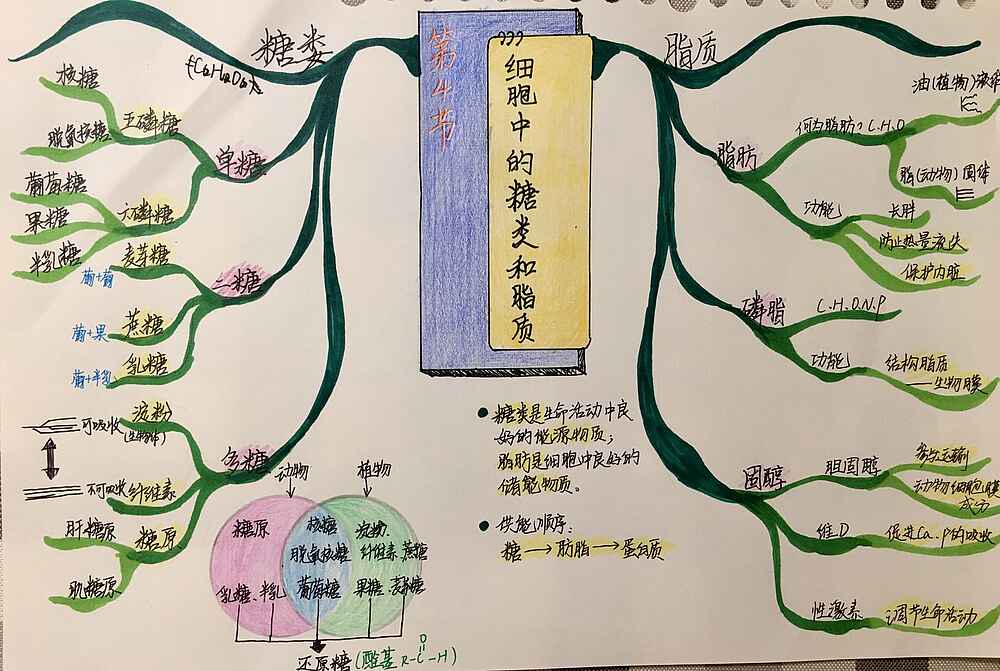 第4节
细胞中的糖类和脂质
糖类
核糖
脱氧核糖
五磷糖
单糖
葡萄糖
果糖
半乳糖
六磷糖
麦芽糖
葡+葡
二糖
蔗糖
葡+果
乳糖
葡+半乳
淀粉
可吸收
不可吸收
纤维素
多糖
肝糖原
糖原
肌糖原
动物
植物
糖原
核糖
脱氧核糖
葡萄糖
淀粉、
纤维素
蔗糖
乳糖、半乳
果糖、麦芽糖
还原糖(醛基 R-C-H)
O
糖类是生命活动中良
好的能源物质;
脂肪是细胞中良好的
储能物质。
供能顺序:
糖→肪脂→蛋白质
脂质
脂肪
何为脂肪? C.H.O
油(植物)液体
脂(动物)固体
功能
长胖
防止热量流失
保护内脏
磷脂
C.H.O.N.P
功能
结构脂质
——生物膜
固醇
胆固醇
参与运输
动物细胞膜
成分
维D
促进Ca.P的吸收
性激素
调节生命活动